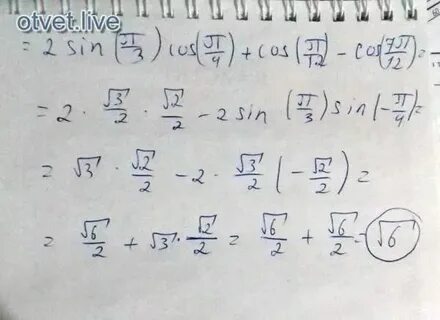 otvet.live
= 2 sin(π/3) cos(π/4) + cos(π/12 - cos(7π/12) =
= 2 · √3/2 · √2/2 - 2 sin (π/3) sin(-π/4) =
= √3 · √2/2 - 2 · √3/2 (-√2/2) =
= √6/2 + √3 · √2/2 = √6/2 + √6/2 = √6